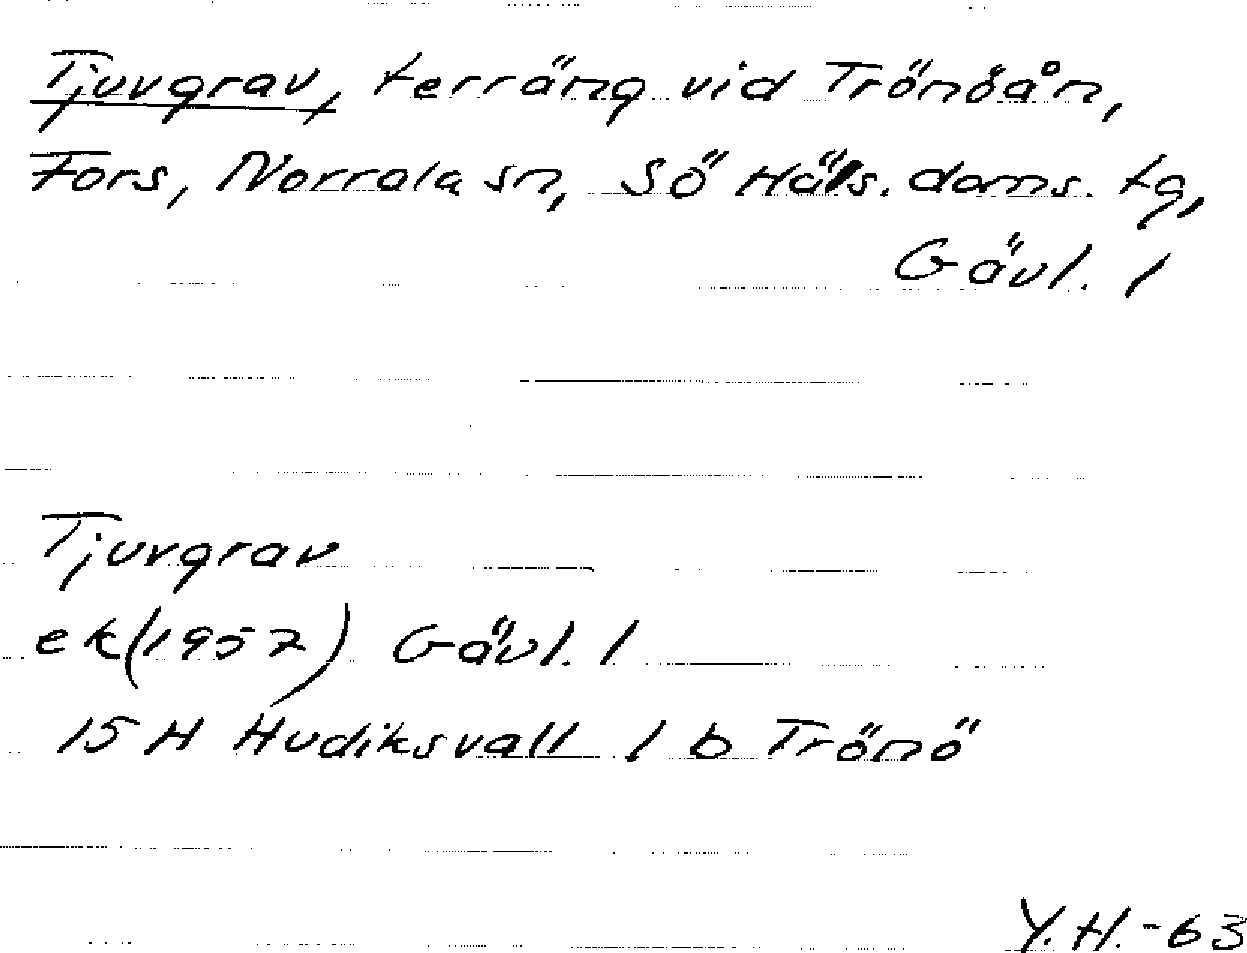 Tjuvgrav, terräng vid Trönöån,
Fors, Norrala sn, Sö Häls. doms. tg,
Gävl. l
Tjuvgrav
ek (1957) Gävl. l
15 H Hudiksvall 1 b Trönö
Y.H.-63